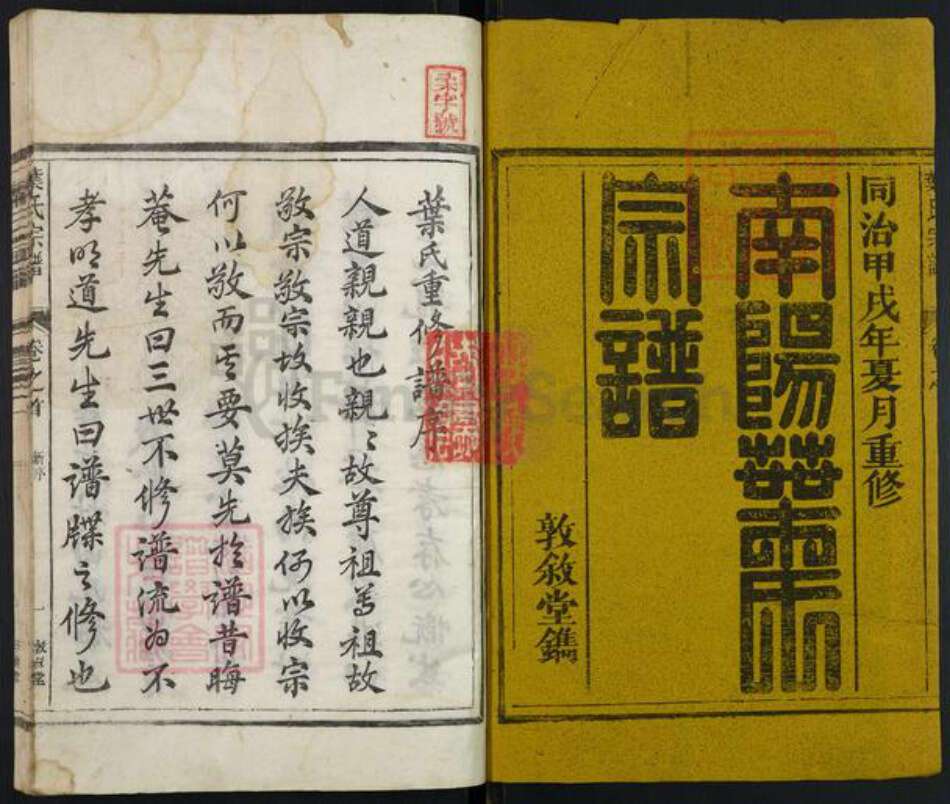 同治甲戌年夏月重修
南陽葉氏
宗譜
敦敘堂鐫
柔字號
葉氏重修譜序
人道親親也親〻故尊祖尊祖故
敬宗敬宗故收族夫族何以收宗
何以敬而其要莫先於譜昔晦
菴先生曰三世不修譜流為不
孝明道先生曰譜牒之修也
葉氏宗譜
卷之首
敦敘堂